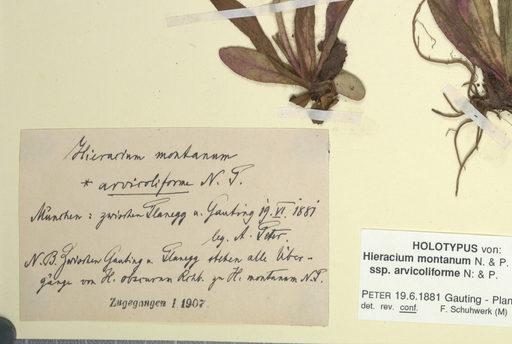 Hieracium montanum
* arvicoliforme N. P.
München: zwischen Planegg u. Gauting 19. VI. 1881
leg. A. Peter.
N.B. Zwischen Gauting u. Planegg stehen alle Über-
gänge von H. obscurum Rchb. zu H. montanum N. P.
Zugegangen I. 1907.
HOLOTYPUS von:
Hieracium montanum N. & P.
ssp. arvicoliforme N: & P.
PETER 19.6.1881 Gauting - Plan
det. rev. conf. F. Schuhwerk (M)